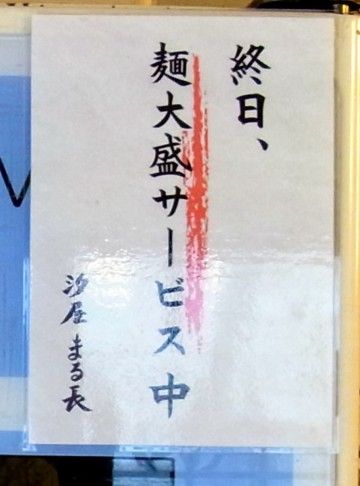 終日、
麺大盛サービス中
汐屋まる長